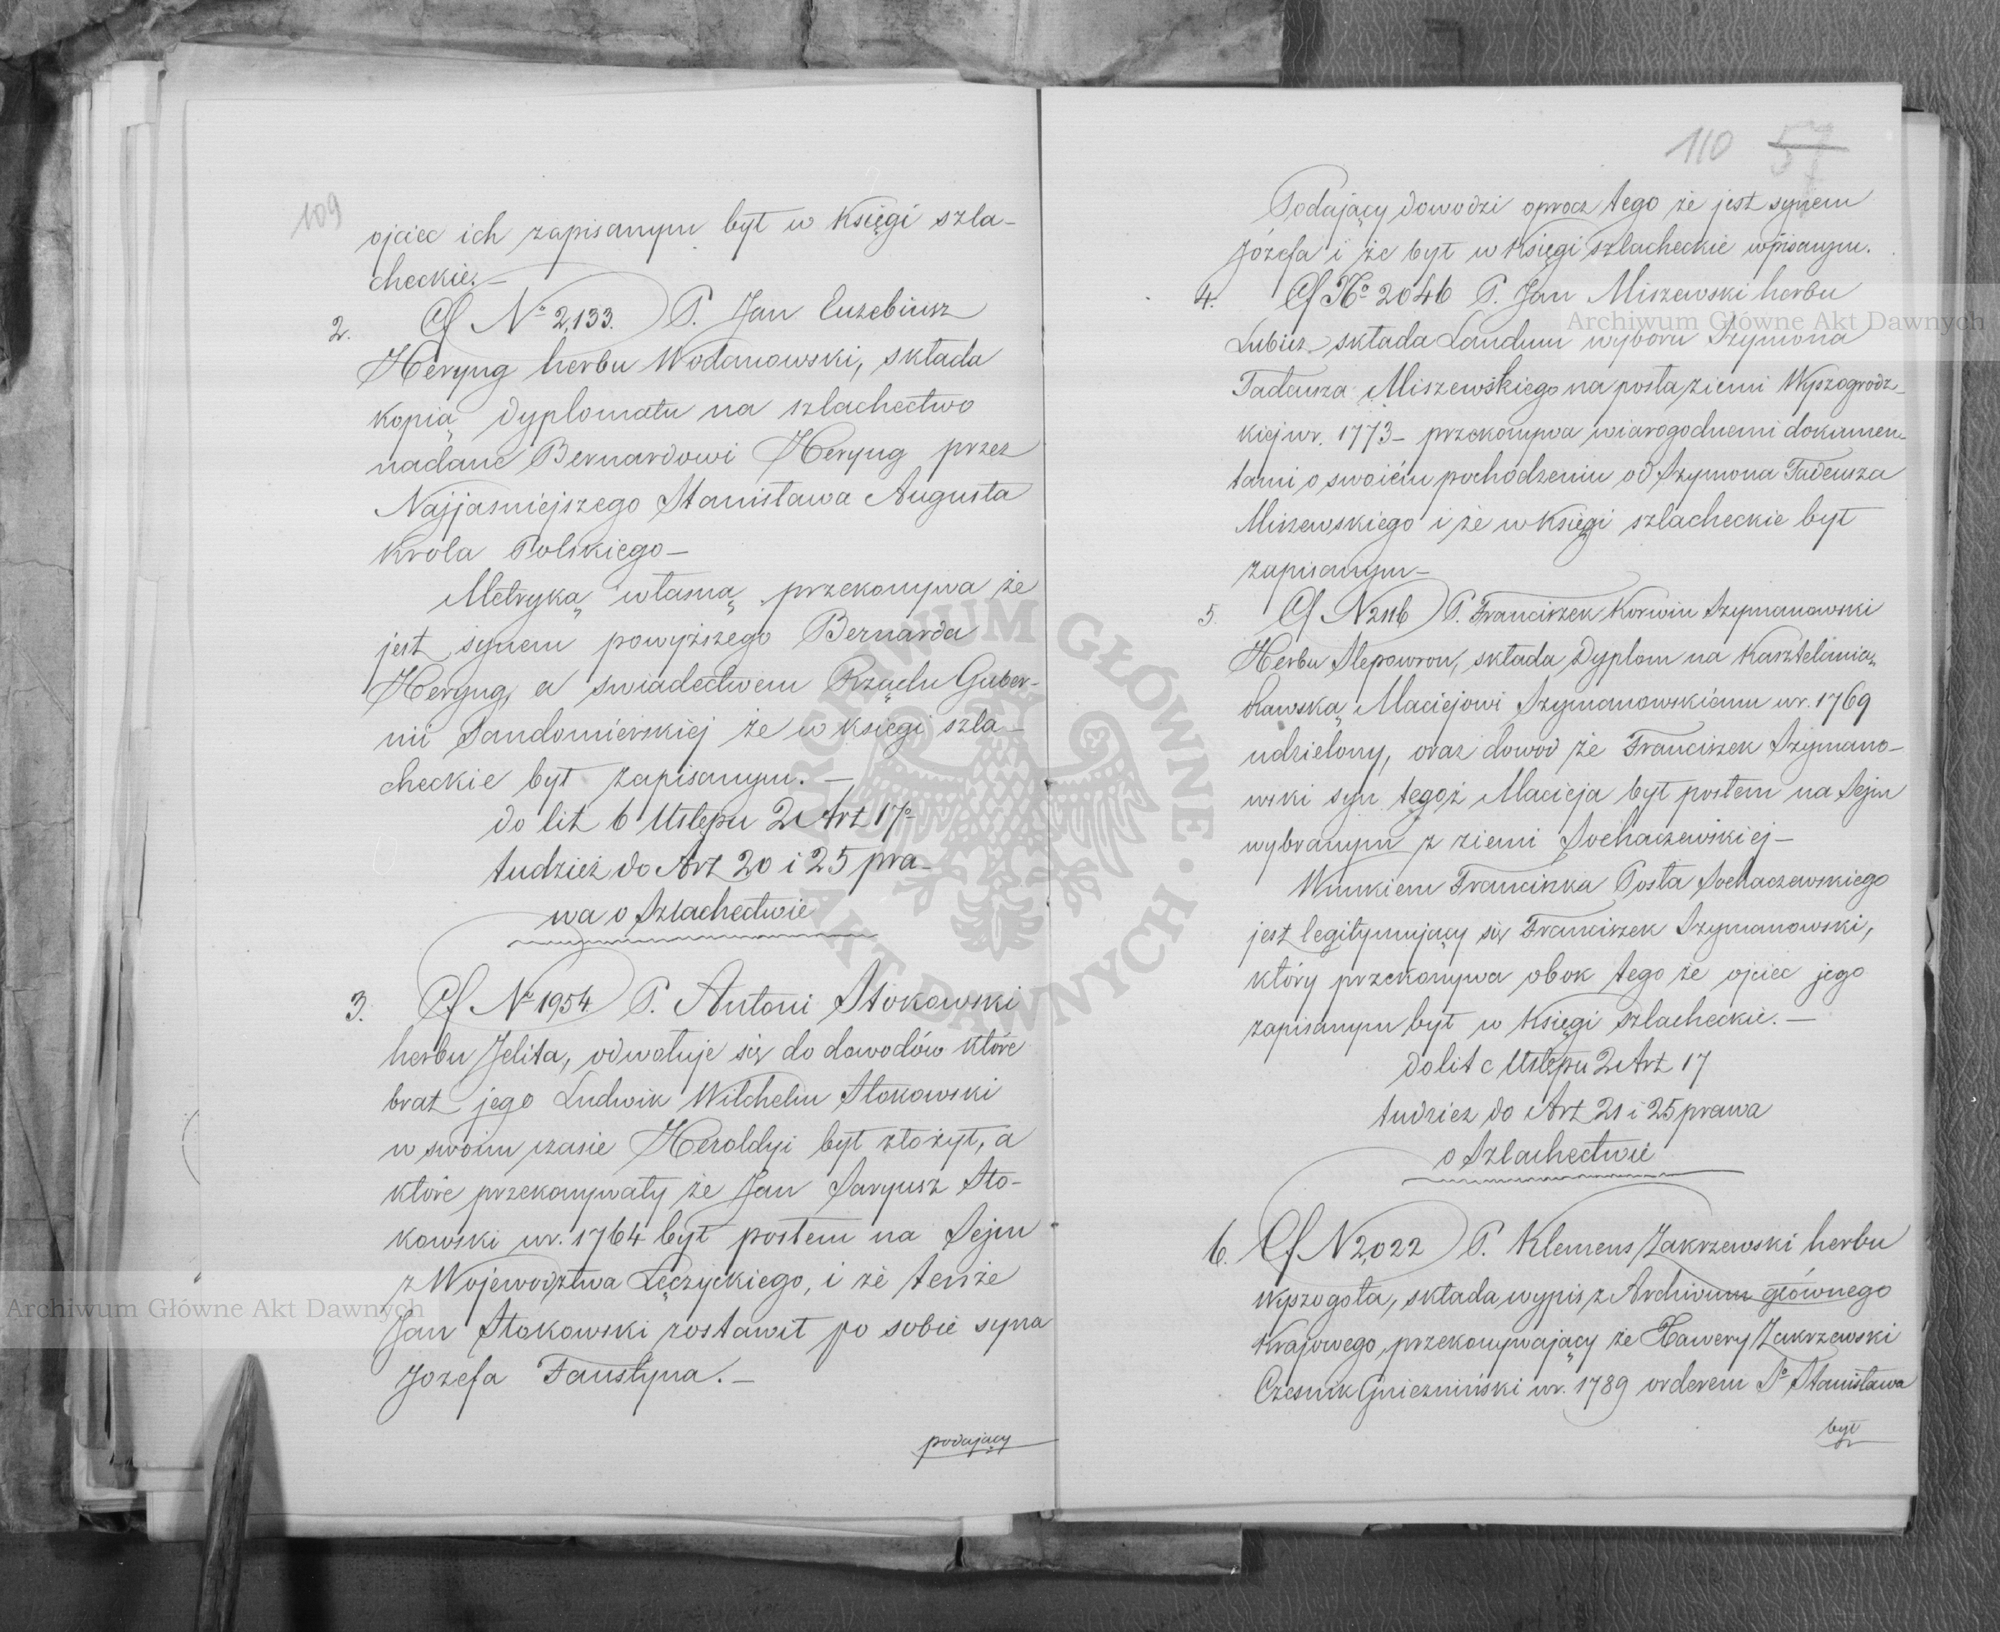 109
ojciec ich zapisanym był w Księgi szla-
checkie.-
2. Cf Nº 2,133. P. Jan Euzebiusz
Heryng herbu Wodanowski, składa
kopią dyplomatu na szlachectwo
nadane Bernardowi Heryng przez
Najjasniejszego Stanisława Augusta
Krola Polskiego-
Metryką własną przekonywa że
jest synem powyższego Bernarda
Heryng, a swiadectwem Rządu Guber-
nii Sandomierskiej że w księgi szla-
checkie był zapisanym.-
do lit b Ustępu 2 Art 17º
tudzież do Art 20 i 25 pra-
wa o Szlachectwie
3. Cf Nº 1954 P. Antoni Stokowski
herbu Jelita, odwołuje się do dowodów które
brat jego Ludwik Wilchelm Stokowski
w swoim czasie Heroldyi był złożył, a
które przekonywały że Jan Saryusz Sto-
kowski w r. 1764 był posłem na Sejm
z Województwa Łęczyckiego, i że tenże
Jan Stokowski zostawił po sobie syna
Jozefa Faustyna.-
podający
110 57
Podający dowodzi oprocz tego że jest synem
Józefa i że był w Księgi szlacheckie wpisanym.
4. Cf Nº 2046 P. Jan Miszewski herbu
Lubicz składa Laudum wyboru Szymona
Tadeusza Miszewskiego na posła ziemi Wyszogrodz-
kiej w r. 1773- przekonywa wiarogodnemi dokumen-
tami o swoićm pochodzeniu od Szymona Tadeusza
Miszewskiego i że w Księgi szlacheckie był
zapisanym-
5. Cf N 2116 P. Franciszek Korwin Szymanowski
Herbu Slepowron, składa Dyplom na Kasztelanią
Rawską Maciejowi Szymanowskiemu w r. 1769
udzielony, oraz dowod że Franciszek Szymano-
wski syn tegoż Macieja był posłem na Sejm
wybranym z ziemi Sochaczewskiej-
Wnukiem Franciszka Posła Sochaczewskiego
jest legitymujący się Franciszek Szymanowski,
który przekonywa obok tego że ojciec jego
zapisanym był w Księgi szlacheckie.-
do lit c Ustępu 2 Art 17
tudzież do Art 21 i 25 prawa
o Szlachectwie
6. Cf N 2,022 P. Klemens Zakrzewski herbu
Wyszogota, składa wypis z Archiwum głównego
Krajowego przekonywający że Xawery Zakrzewski
Czesnik Gnieznińśki w r. 1789 orderem Sº Stanisława
był
Archiwum Główne Akt Dawnych
Archiwum Główne Akt Dawnych
ARCHIWUM GŁÓWNE AKT DAWNYCH